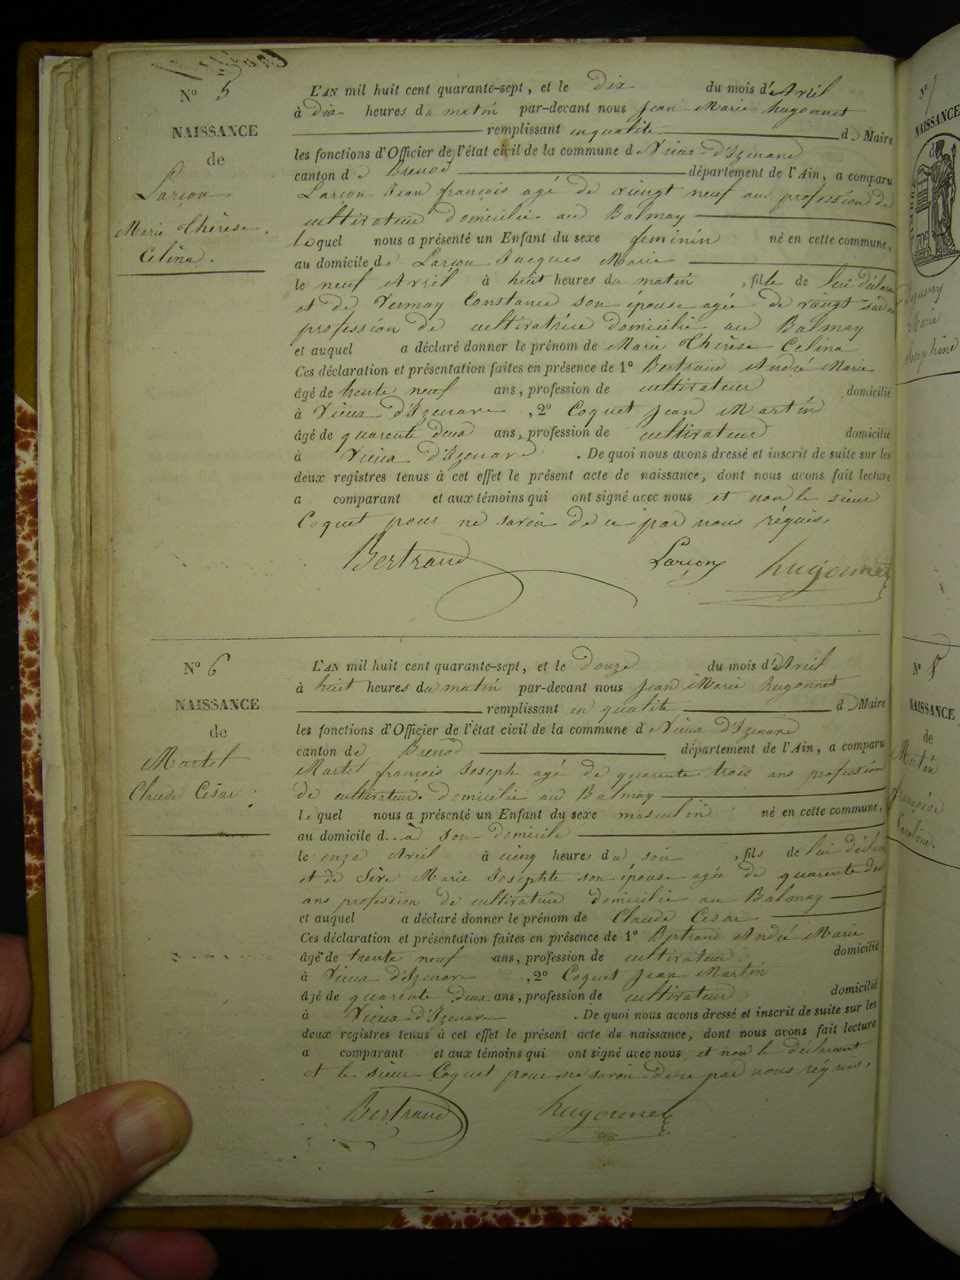 N° 5
NAISSANCE
de
Larçon
Marie Thérèse
Célina.
L'AN mil huit cent quarante-sept, et le dix du mois d'Avril
à dix heures du matin par-devant nous Jean Marie hugonnet
remplissant en qualité d Maire
les fonctions d'Officier de l'état civil de la commune d Vieux d'Izenave
canton de Brenod département de l'Ain, a comparu
Larçon Jean françois agé de vingt neuf ans profession de
cultivateur domicilié au Balmay
lequel nous a présenté un Enfant du sexe féminin né en cette commune,
au domicile de Larçon Jacques Marie
le neuf Avril à huit heures du matin , fille de lui déclarant
et de Constance son épouse agée de vingt
profession de cultivatrice domicilié au Balmay
et auquel a déclaré donner le prénom de Marie Thérèse Celina
Ces déclaration et présentation faites en présence de 1° Bertrand André Marie
âgé de trente neuf ans, profession de cultivateur domicilié
à Vieux d'Izenave , 2° Coquet Jean Martin
âgé de quarente deux ans, profession de cultivateur domicilié
à Vieux d'Izenave . De quoi nous avons dressé et inscrit de suite sur les
deux registres tenus à cet effet le présent acte de naissance, dont nous avons fait lecture
a comparant et aux témoins qui ont signé avec nous et non le sieur
Coquet pour ne savoir de ce par nous réquis.
Bertrand Larçon hugonnet
N° 6
NAISSANCE
de
Martel
Claude César
L'AN mil huit cent quarante-sept, et le douze du mois d'Avril
à huit heures du matin par-devant nous Jean Marie hugonnet
remplissant en qualité d Maire
les fonctions d'Officier de l'état civil de la commune d Vieux d'Izenave
canton de Brenod département de l'Ain, a comparu
Martel françois Joseph agé de quarente trois ans profession
de cultivateur domicilié au Balmay
lequel nous a présenté un Enfant du sexe masculin né en cette commune,
au domicile d.. a son domicile
le onze Avril à cinq heures du soir , fils de lui déclarant
et de Marie Josephte son épouse agée de quarente deux
ans profession de cultivateur domicilié au Balmay
et auquel a déclaré donner le prénom de Claude Cesar
Ces déclaration et présentation faites en présence de 1° Bertrand André Marie
âgé de trente neuf ans, profession de cultivateur domicilié
à Vieux d'Izenave , 2° Coquet Jean Martin
âgé de quarente deux ans, profession de cultivateur domicilié
à Vieux d'Izenave . De quoi nous avons dressé et inscrit de suite sur les
deux registres tenus à cet effet le présent acte de naissance, dont nous avons fait lecture
a comparant et aux témoins qui ont signé avec nous et non le déclarant
et le sieur Coquet pour ne savoir de ce par nous requis.
Bertrand hugonnet
N° 7
NAISSANCE
Marie
Josephine
N° 8
NAISSANCE
de
Martin
françoise
Caroline.